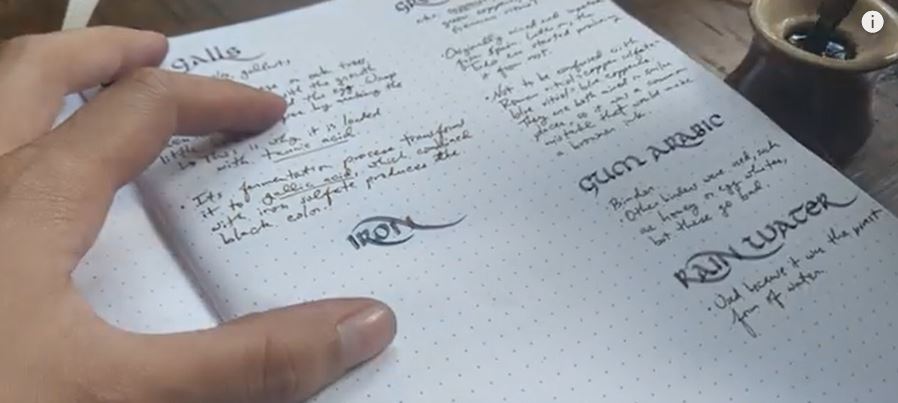 galls
galluts,
on oak trees
the egg. Wasp
by making the
little
this is why it is loaded
with tannic acid
• Its fermentation process transforms
it to gallic acid, which combined
with iron sulfate produces the
black color.
IRON
Originally mined and
from Spain. Later on the
started producing
it from
• Not to be confused with
Roman vitriol: copper sulfate.
blue vitriol: blue copperas
they are both mined in similar
places, so it was a common
mistake that would make
a browner ink.
GUM ARABIC
Binder.
Other binders were used, such
as honey or egg whites,
but these go bad.
RAIN WATER
• Used because it was the purest
form of water.